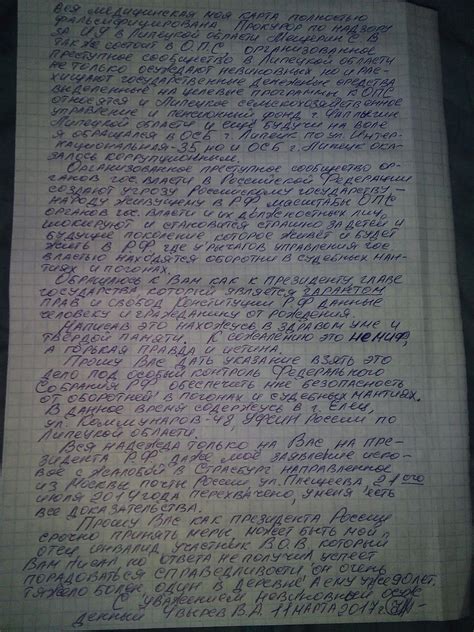 Вся медицинская моя карта полностью
фальсифицирована. Прокурор по надзору
за ИУ в Липецкой области Мощерин С В
также состоит в О.П.С. организованное
преступное сообщество в Липецкой области
не только осуждают невиновных но и рас-
хищают государственные денежные средства
выделенные на целевые программы. К ОПС
относятся и Липецкое сельскохозяйственное
управление и пенсионный фонд г.
Липецкой области и ещё будучи на воле
я обращался в ОСБ г. Липецк по ул. Интер-
национальная-35, но и ОСБ г. Липецк ока-
залось коррупционным.
Организованное преступное сообщество ор-
ганов гос. власти в Российской Федерации
создают угрозу Российскому государству-
народу живущему в РФ, масштабы ОПС
органов гос. власти и их должностных лиц
шокируют и становится страшно за детей и
будущие поколение которое живёт и будет
жить в РФ, где у рычагов управления гос
властью находятся оборотни в судебных ман-
тиях и погонах.
Обращаюсь к Вам как к президенту главе
государства который является гарантом
прав и свобод Конституции РФ данные
человеку и гражданину от рождения.
Написав это нахожусь в здравом уме и
твёрдой памяти. К сожалению это не миф,
а горькая правда и истина.
Прошу Вас дать указание взять это
дело под особый контроль Федерального
Собрания РФ, обеспечить мне безопасность
от оборотней в погонах и судебных мантиях.
В данное время содержусь в г. Елец,
ул. Коммунаров-48 УФСИН России по
Липецкой области.
Вся надежда только на Вас на пре-
зидента РФ. Даже моё заявление иско-
вое с жалобой в Страсбург направленное
из Москвы почты России ул. 21ого
июля 2014 года перехвачено, у меня есть
все доказательства.
Прошу Вас как президента России
срочно принять меры, может быть мой
отец инвалид, участник В.О.В. который
Вам писал, но ответа не получил успеет
порадоваться справедливости он очень
тяжело болен один в деревне а ему уже 90 лет.
С уважением невиновный осуж-
денный В.А. 11 марта 2017 г.